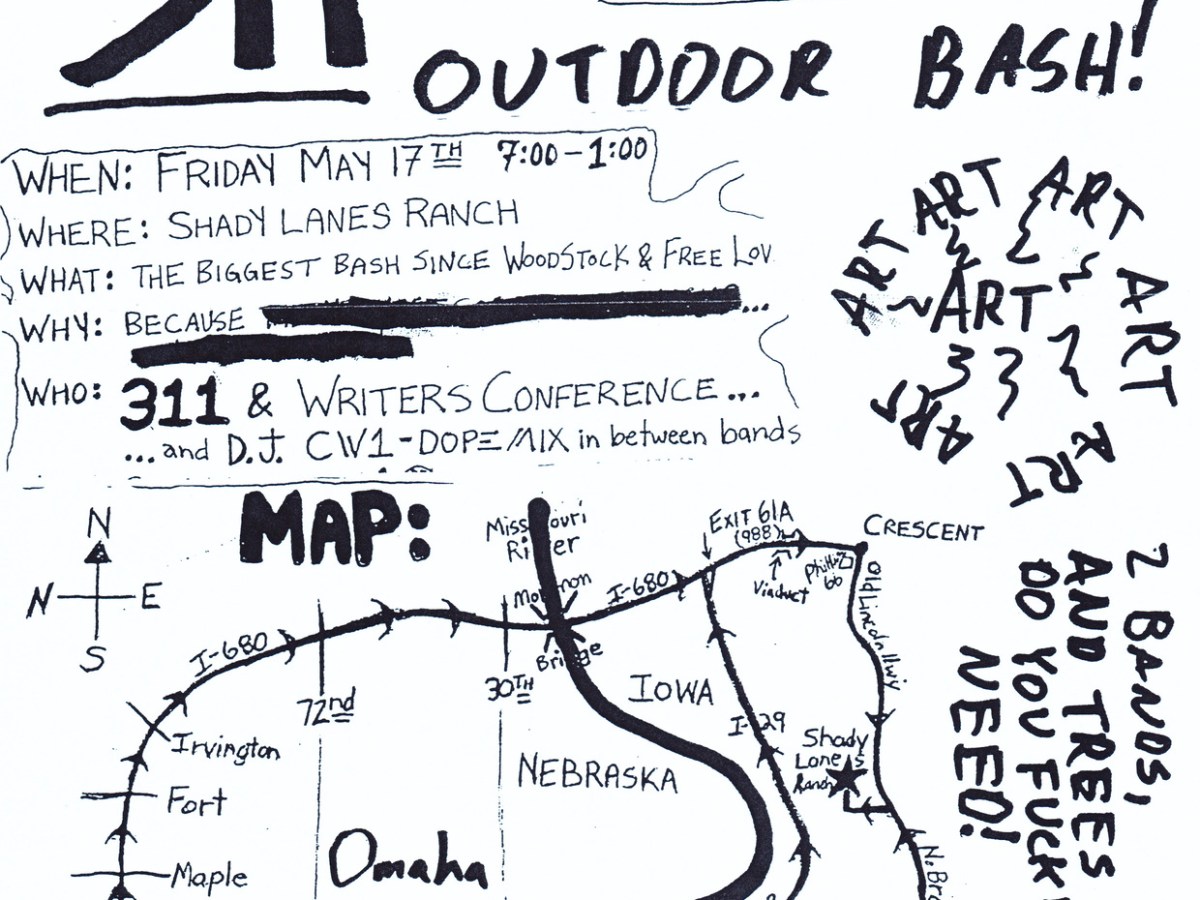 OUTDOOR BASH!
WHEN: FRIDAY MAY 17TH 7:00-1:00
WHERE: SHADY LANES RANCH
WHAT: THE BIGGEST BASH SINCE WOODSTOCK & FREE LOV
WHY: BECAUSE ...
WHO: 311 & WRITERS CONFERENCE...
...and D.J. CW1-DOPEMIX in between bands
ART ART
ART ART
ART
ART ART
2 BANDS,
AND TREES
DO YOU FUCK
NEED!
MAP:
N
N E
S
Missouri
River
Mormon
Bridge
EXIT 61A
(988)
CRESCENT
Viaduct
Phillips
66
Old Lincoln Hwy
I-680
I-680
72nd
30TH
IOWA
I-29
Shady
Lane's
Ranch
Irvington
NEBRASKA
Fort
Omaha
Maple